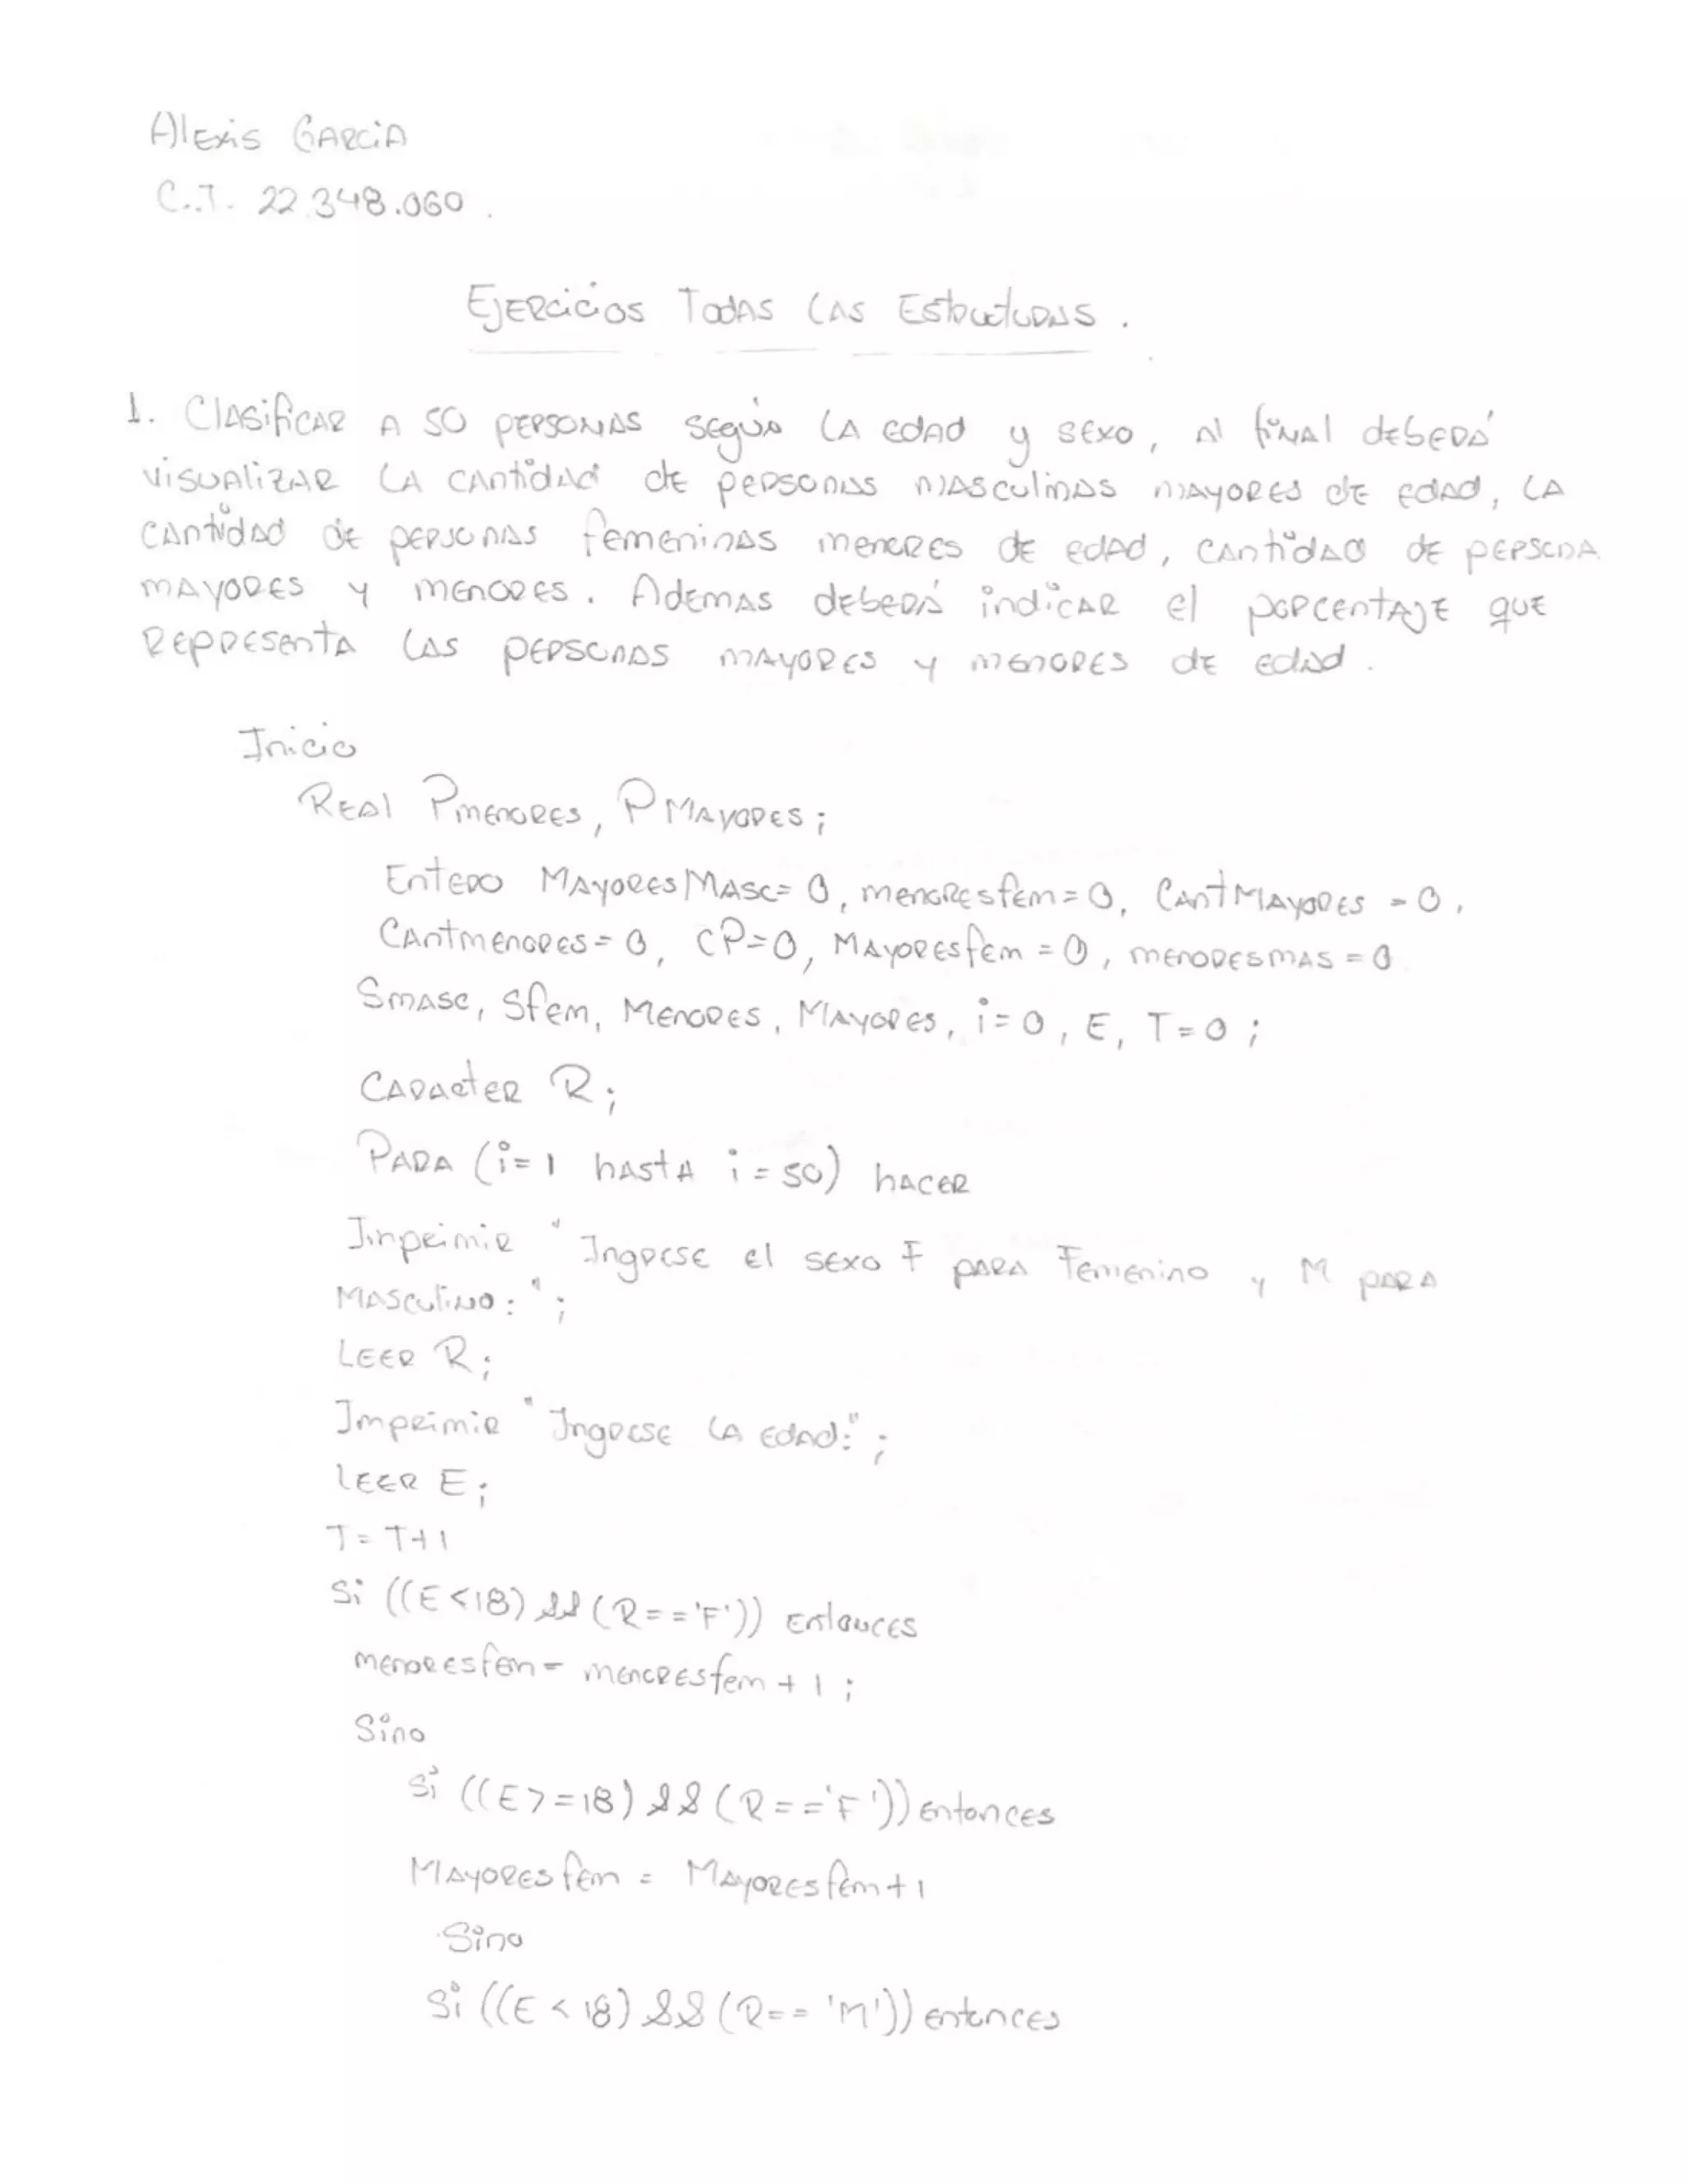 Alexis García
C.I. 22.348.060.
Ejercicios Todas las Estructuras.
1. Clasificar a 50 personas según la edad y sexo, al final deberá
visualizar la cantidad de personas masculinas mayores de edad, la
cantidad de personas femeninas menores de edad, cantidad de persona
mayores y menores. Ademas deberá indicar el porcentaje que
representa las personas mayores y menores de edad.
Inicio
Real Pmenores, PMayores;
Entero MayoresMasc= 0, menoresfem= 0, CantMayores = 0,
Cantmenores= 0, CP=0, Mayoresfem = 0, menoresmas = 0
Smasc, Sfem, Menores, Mayores, i= 0, E, T= 0;
Caracter R;
Para (i= 1 hasta i = 50) hacer
Imprimir "Ingrese el sexo F para Femenino y M para
Masculino:";
Leer R;
Imprimir "Ingrese la edad:";
Leer E;
T= T+1
Si ((E<18) && (R=='F')) Entonces
menoresfem= menoresfem + 1;
Sino
Si ((E>=18) && (R=='F')) entonces
Mayoresfem = Mayoresfem+1
Sino
Si ((E < 18) && (R== 'M')) entonces